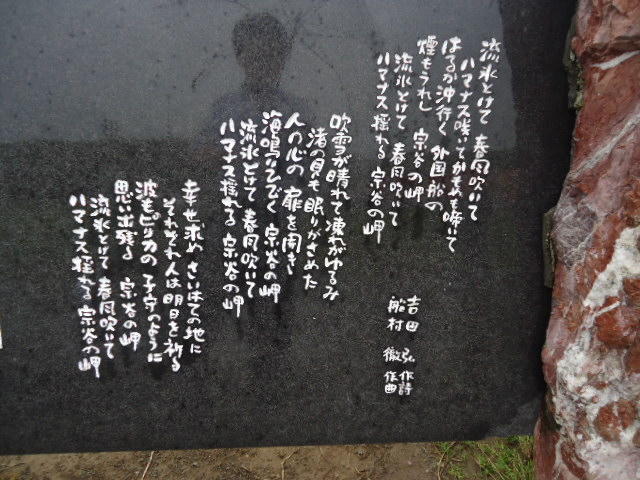 流氷とけて 春風吹いて
ハマナス咲いて かもめも啼いて
はるか沖行く 外国船の
煙もうれし 宗谷の岬
流氷とけて 春風吹いて
ハマナス揺れる 宗谷の岬
吹雪が晴れて 凍れがゆるみ
渚の貝も 眠りがさめた
人の心の 扉を開き
海鳴りひびく 宗谷の岬
流氷とけて 春風吹いて
ハマナス揺れる 宗谷の岬
幸せ求め さいはての地に
それぞれ人は 明日を祈る
波もピリカの 子守のように
思い出残る 宗谷の岬
流氷とけて 春風吹いて
ハマナス揺れる 宗谷の岬
吉田 弘 作詩
船村 徹 作曲